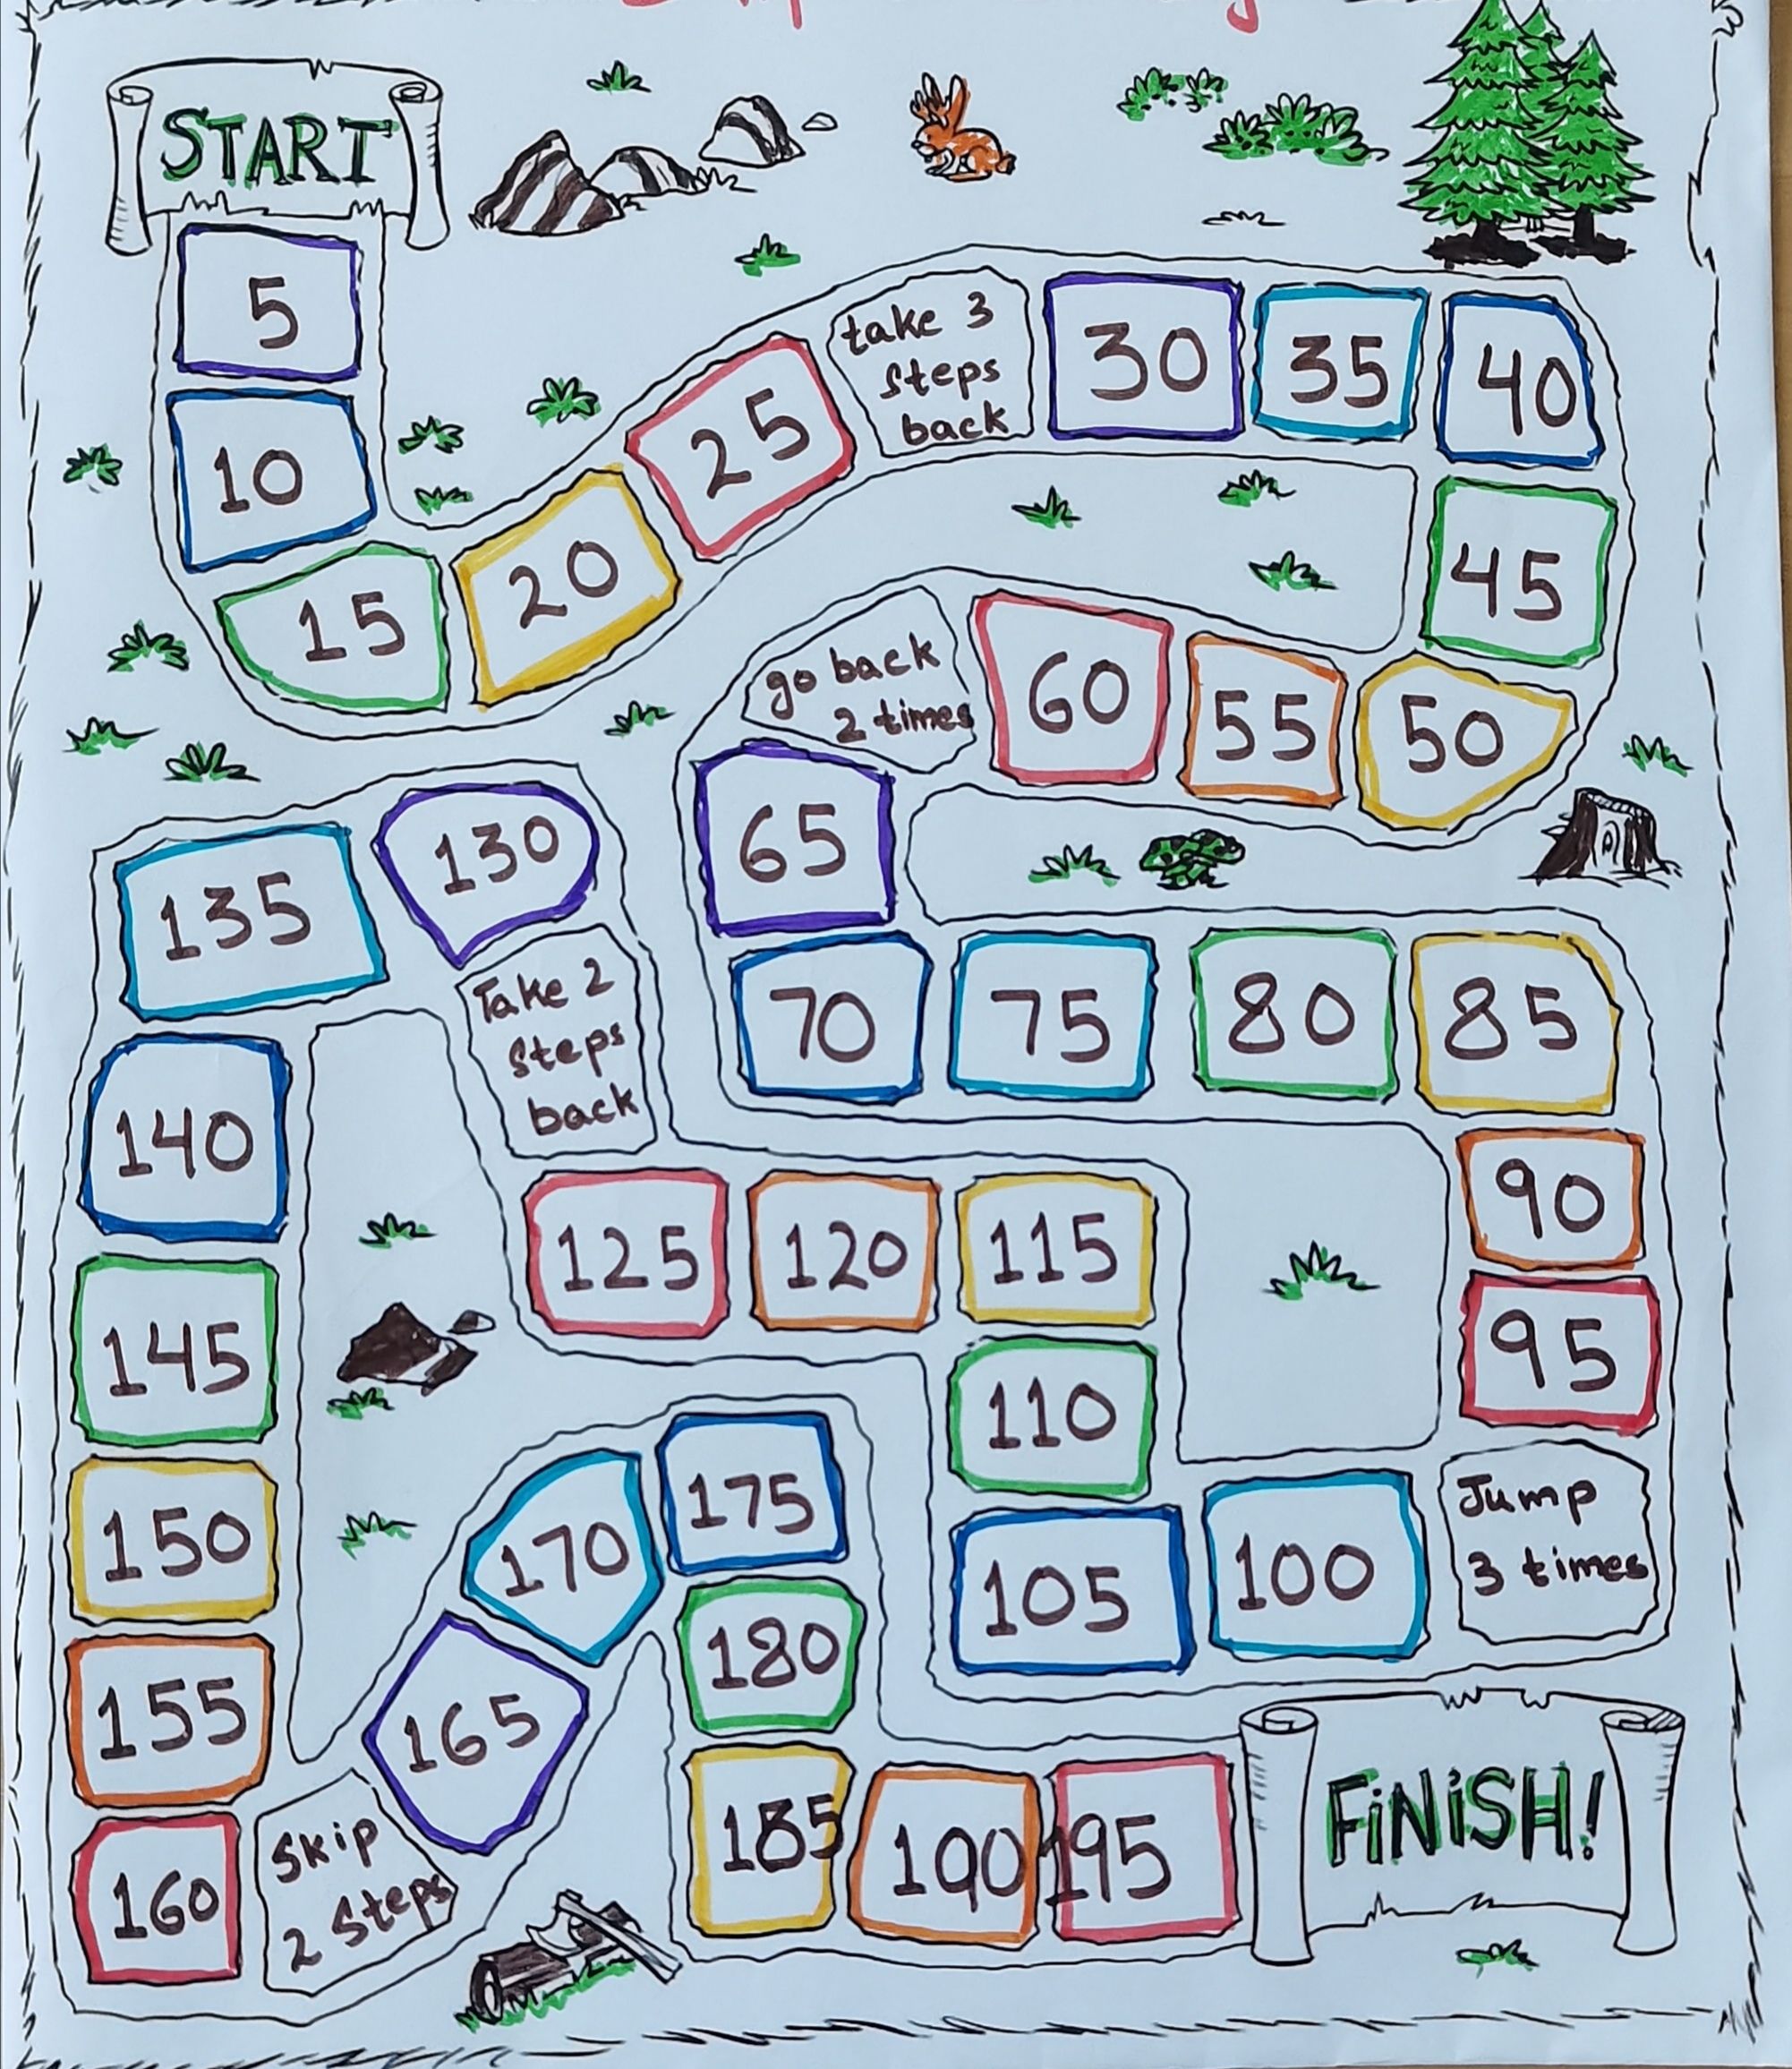 START
5
10
15
20
25
take 3
steps
back
30
35
40
45
50
55
60
go back
2 times
65
70
75
80
85
90
95
Jump
3 times
100
105
110
115
120
125
Take 2
steps
back
130
135
140
145
150
155
160
Skip
2 Steps
165
170
175
180
185
190
195
FiNiSH!